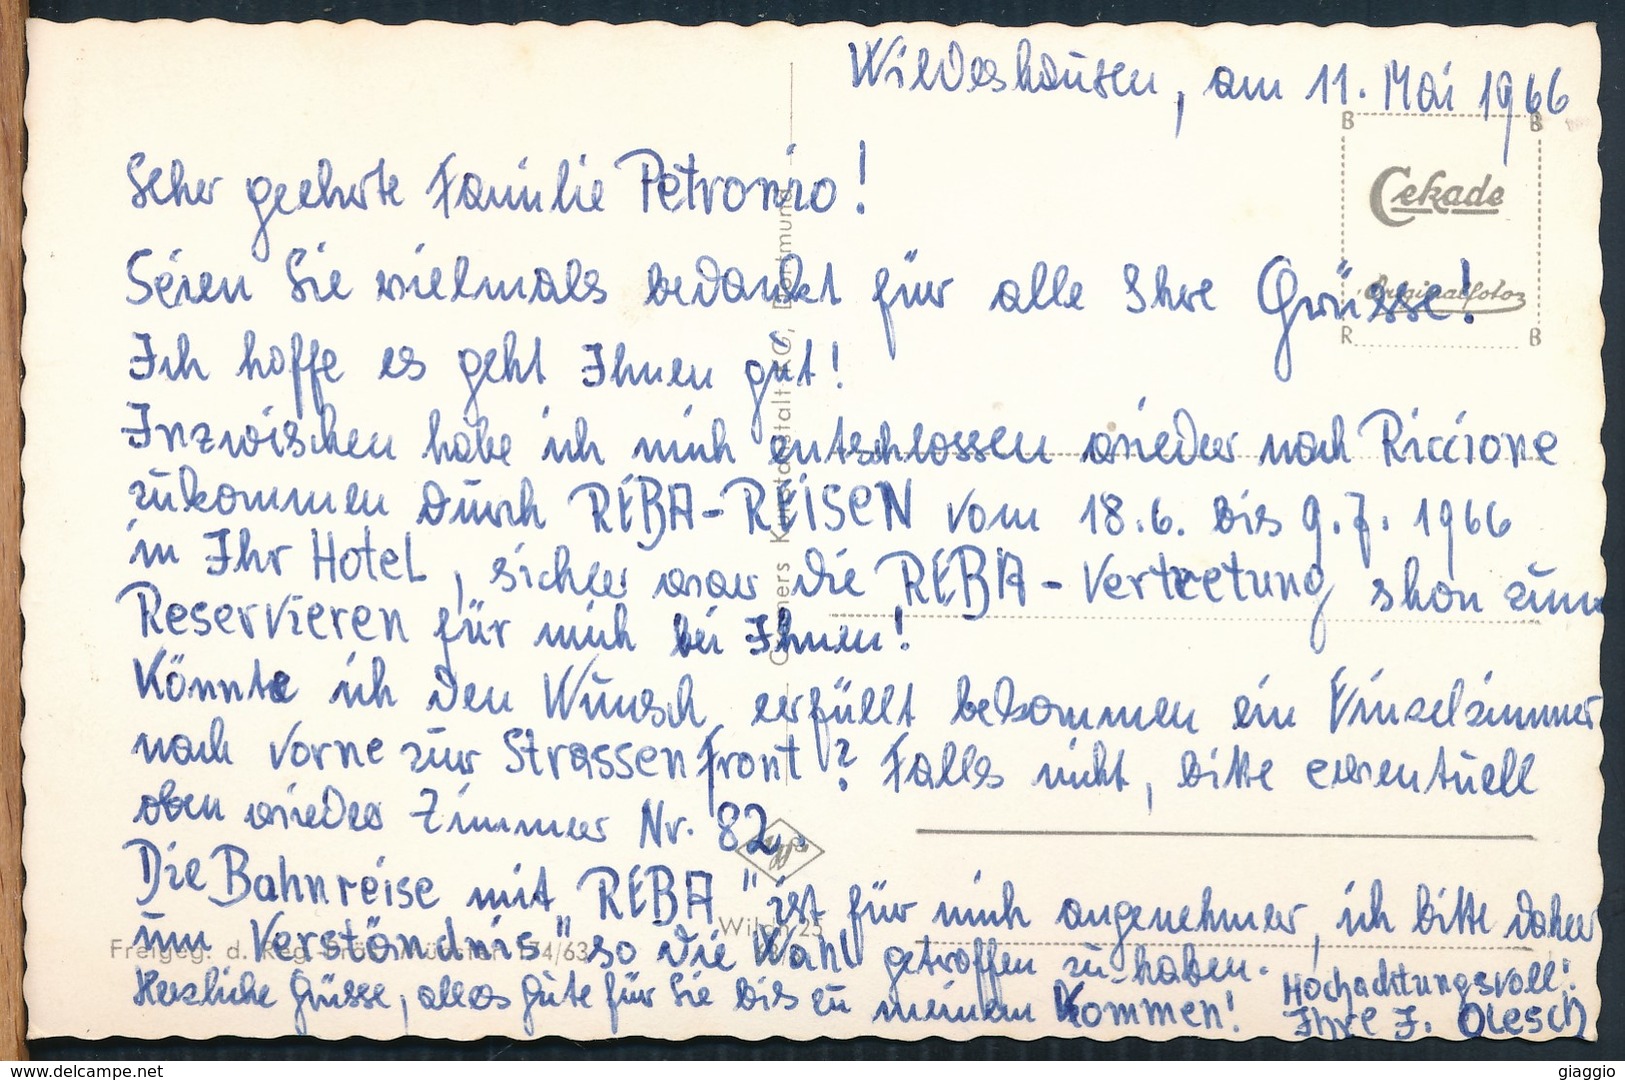 Wildeshausen, am 11. Mai 1966
B B
Cekade
Originalfoto
R B
Sehr geehrte Familie Petronio!
Seien Sie vielmals bedankt für alle Ihre Grüsse!
Ich hoffe es geht Ihnen gut!
Inzwischen habe ich mich entschlossen wieder nach Riccione
zukommen durch REBA-REISEN vom 18.6. bis 9.7. 1966
in Ihr Hotel, sicher war die REBA-Vertretung shon zum
Reservieren für mich bei Ihnen!
Könnte ich den Wunsch erfüllt bekommen ein Einzelzimmer
nach vorne zur Strassenfront? Falls nicht, bitte eventuell
oben wieder Zimmer Nr. 82.
Die Bahnreise mit "REBA" ist für mich angenehmer, ich bitte daher
um "Verständnis" so die Wahl getroffen zu haben.
Herzliche Grüsse, alles Gute für Sie bis zu meinem Kommen!
Hochachtungsvoll!
Ihre J. Olesch
Cramers Kunstanstalt KG, Dortmund
Agfa
Wildh 25
Freigeg. d. Reg. Münster 174/63
delcampe.net
giaggio